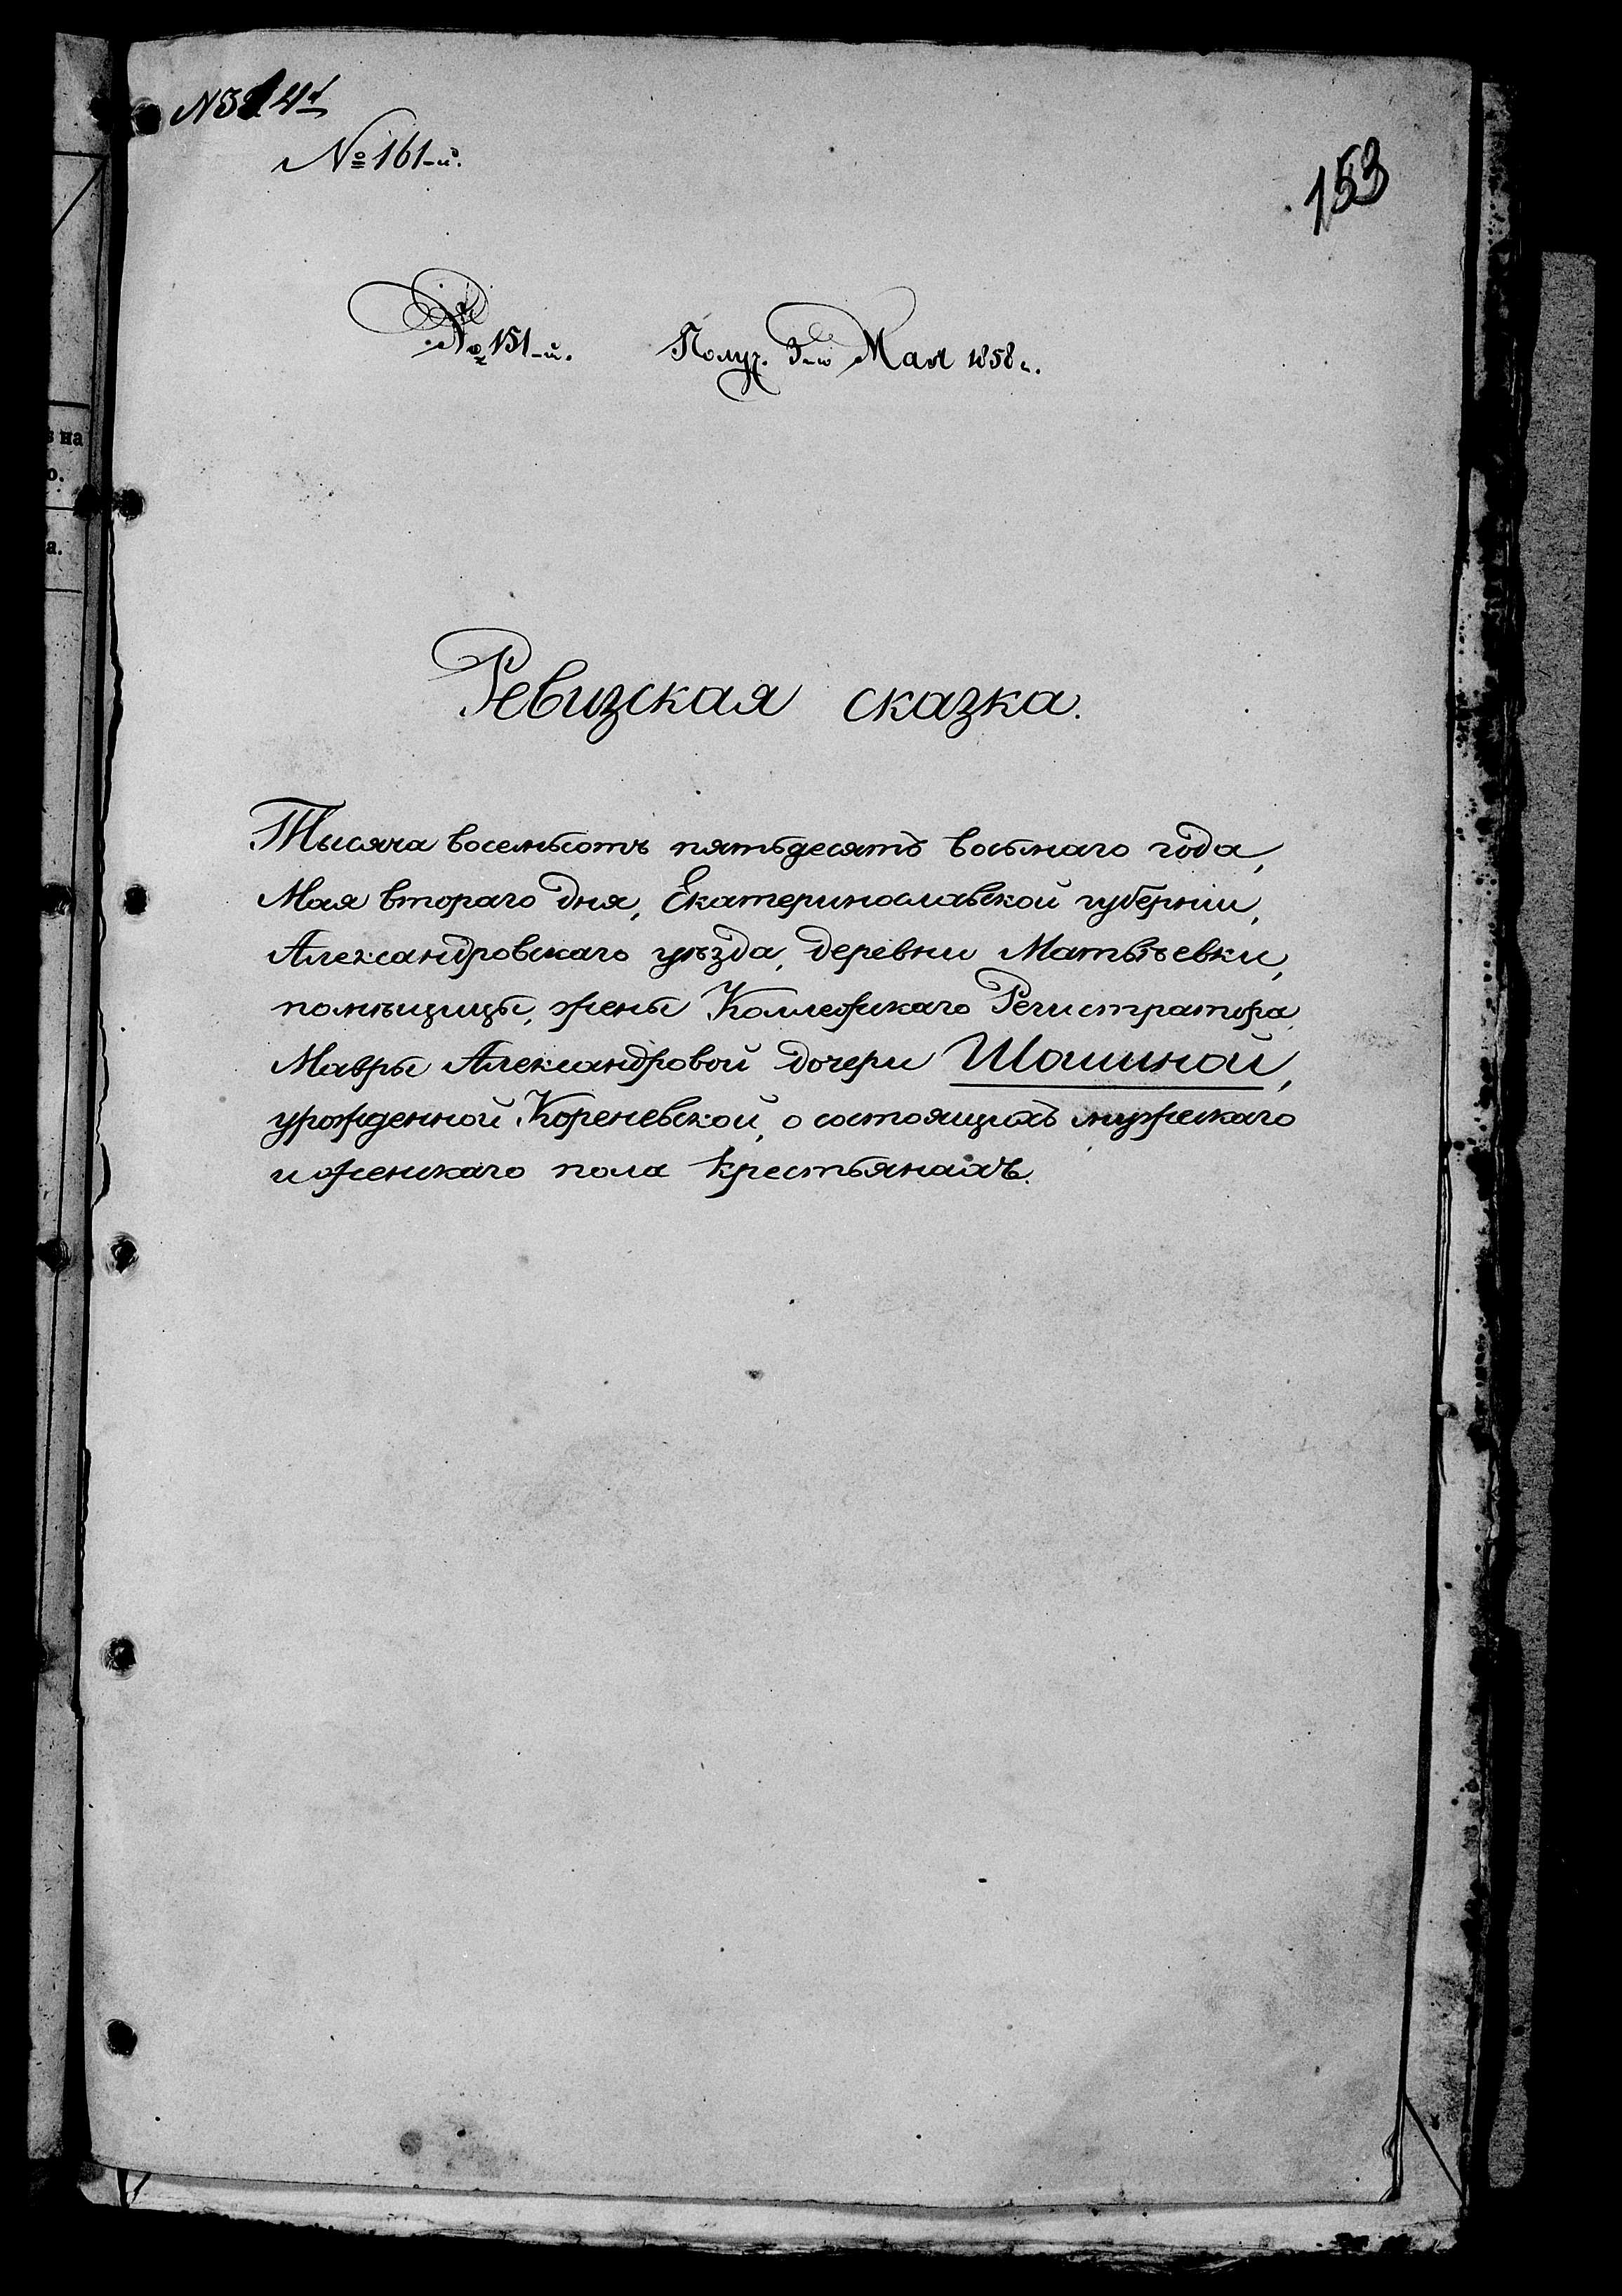 № 161-й.
153
№ 151-й. Получ. 3-го Мая 1858 г.
Ревизская сказка.
Тысяча восемьсотъ пятьдесятъ восьмаго года,
Мая втораго дня, Екатеринославской губерніи,
Александровскаго уѣзда, деревни Матвѣевки,
помѣщицы, жены Коллежскаго Регистратора
Мавры Александровой дочери Шашиной,
урожденной Кореневской, о состоящихъ мужескаго
и женскаго пола крестьянахъ.
в на
о.
а.